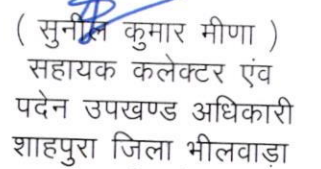 ( सुनील कुमार मीणा )
सहायक कलेक्टर एंव
पदेन उपखण्ड अधिकारी
शाहपुरा जिला भीलवाड़ा